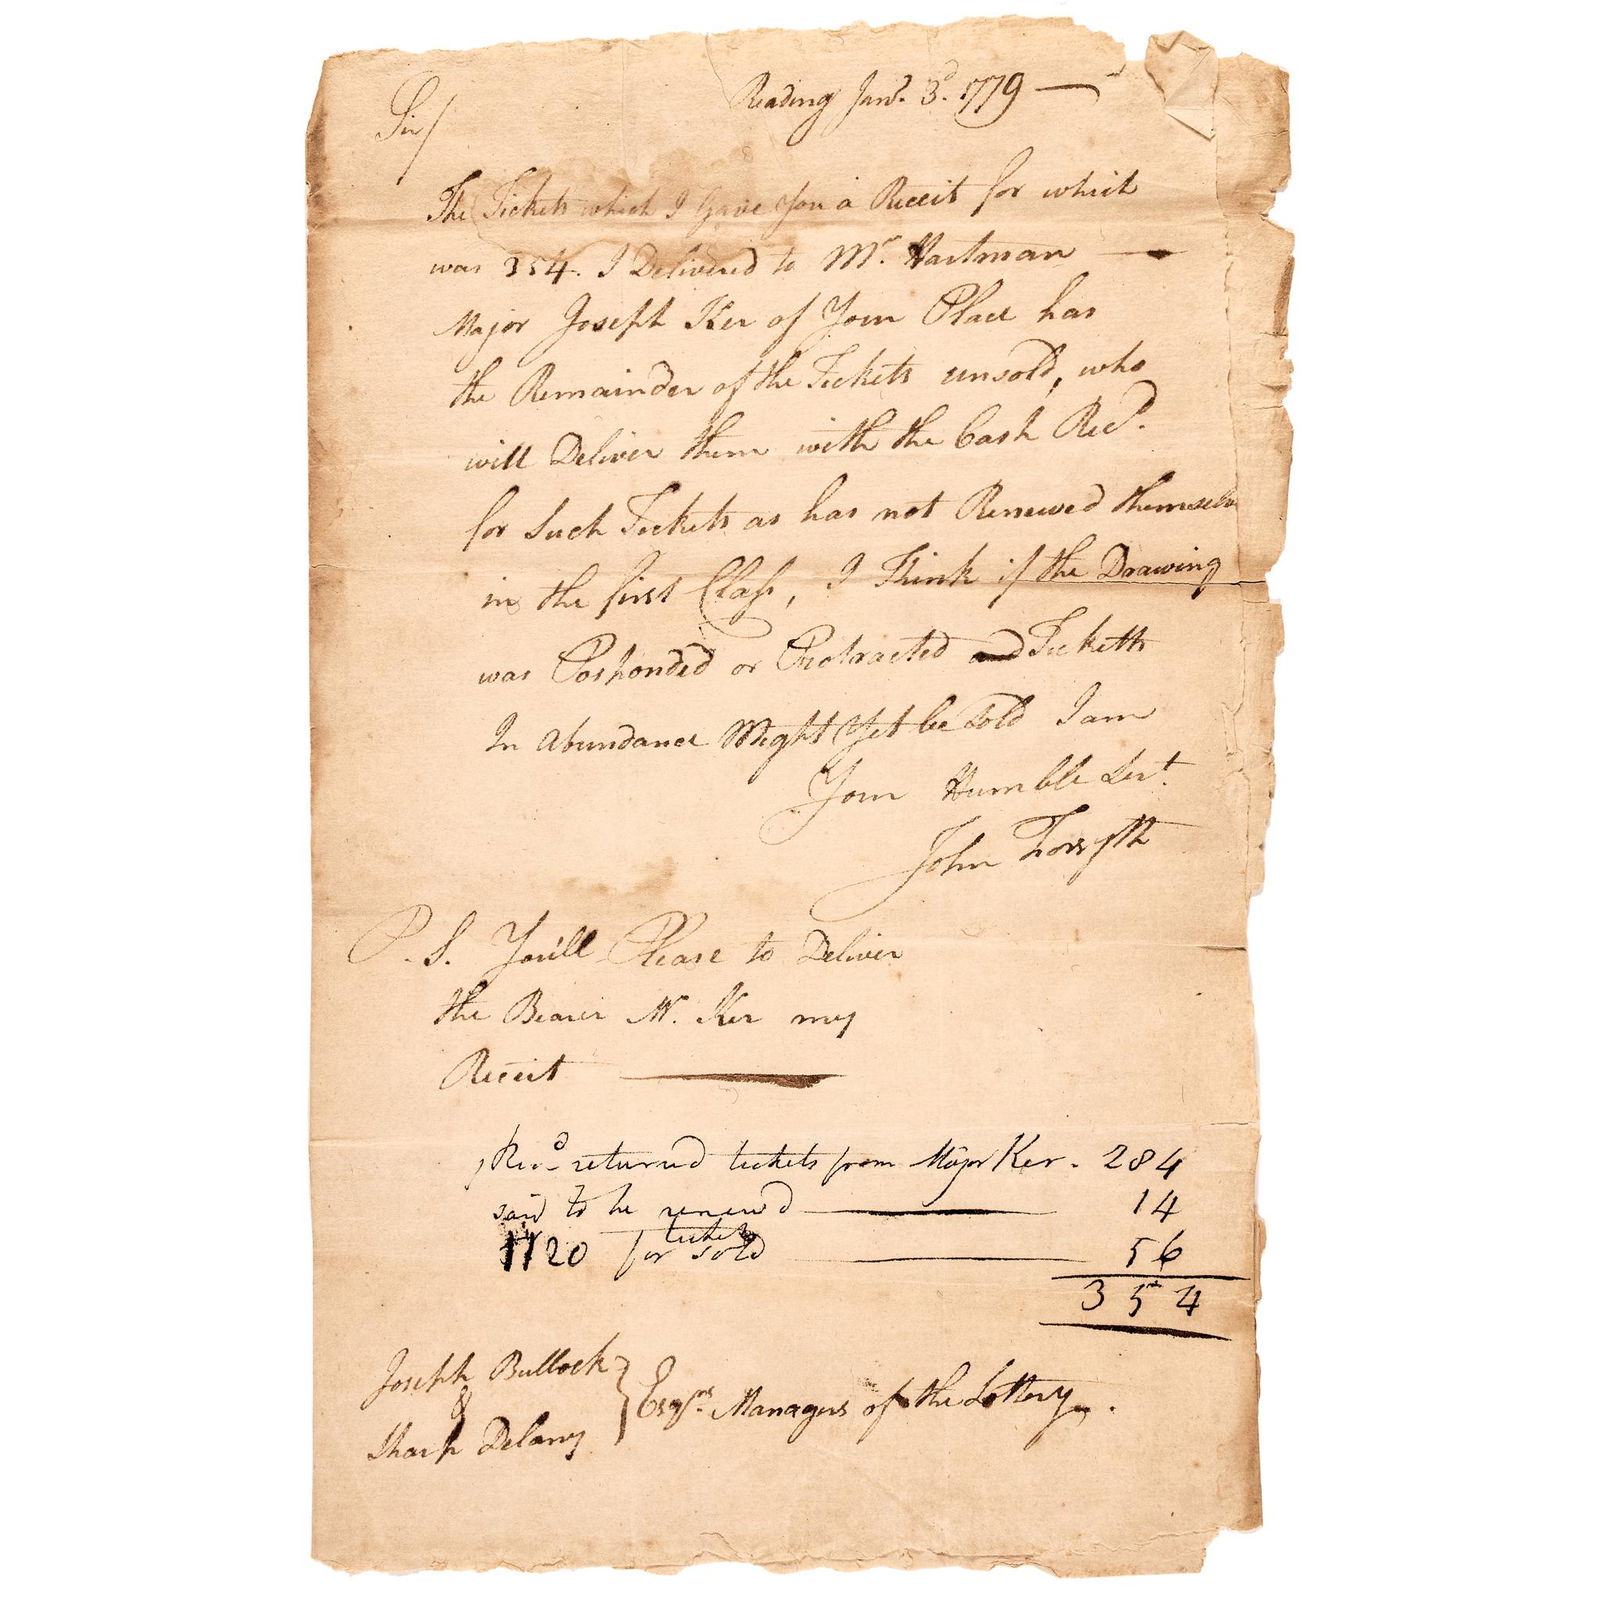 Reading Jany. 3d. 1779
Sir/
The Tickets which I Gave You a Receit for which
was 354. I Delivered to Mr. Hartman
Major Joseph Ker of Your Place has
the Remainder of the Tickets unsold, who
will Deliver them with the Cash Recd.
for Such Tickets as has not Renewed themselv
in the first Class, I Think if the Drawing
was Posponded or Protracted and Ticketts
In abundance Might Yet be Sold I am
Your Humble Servt.
John Forsyth
P.S. You'll Please to Deliver
the Bearer Mr. Ker my
Receit
Recd returned tickets from Major Ker. 284
said to be renewd 14
tickets
1120 for sold 56
354
Joseph Bullock
&
Esqrs. Managers of the Lottery.
Sharp Delany